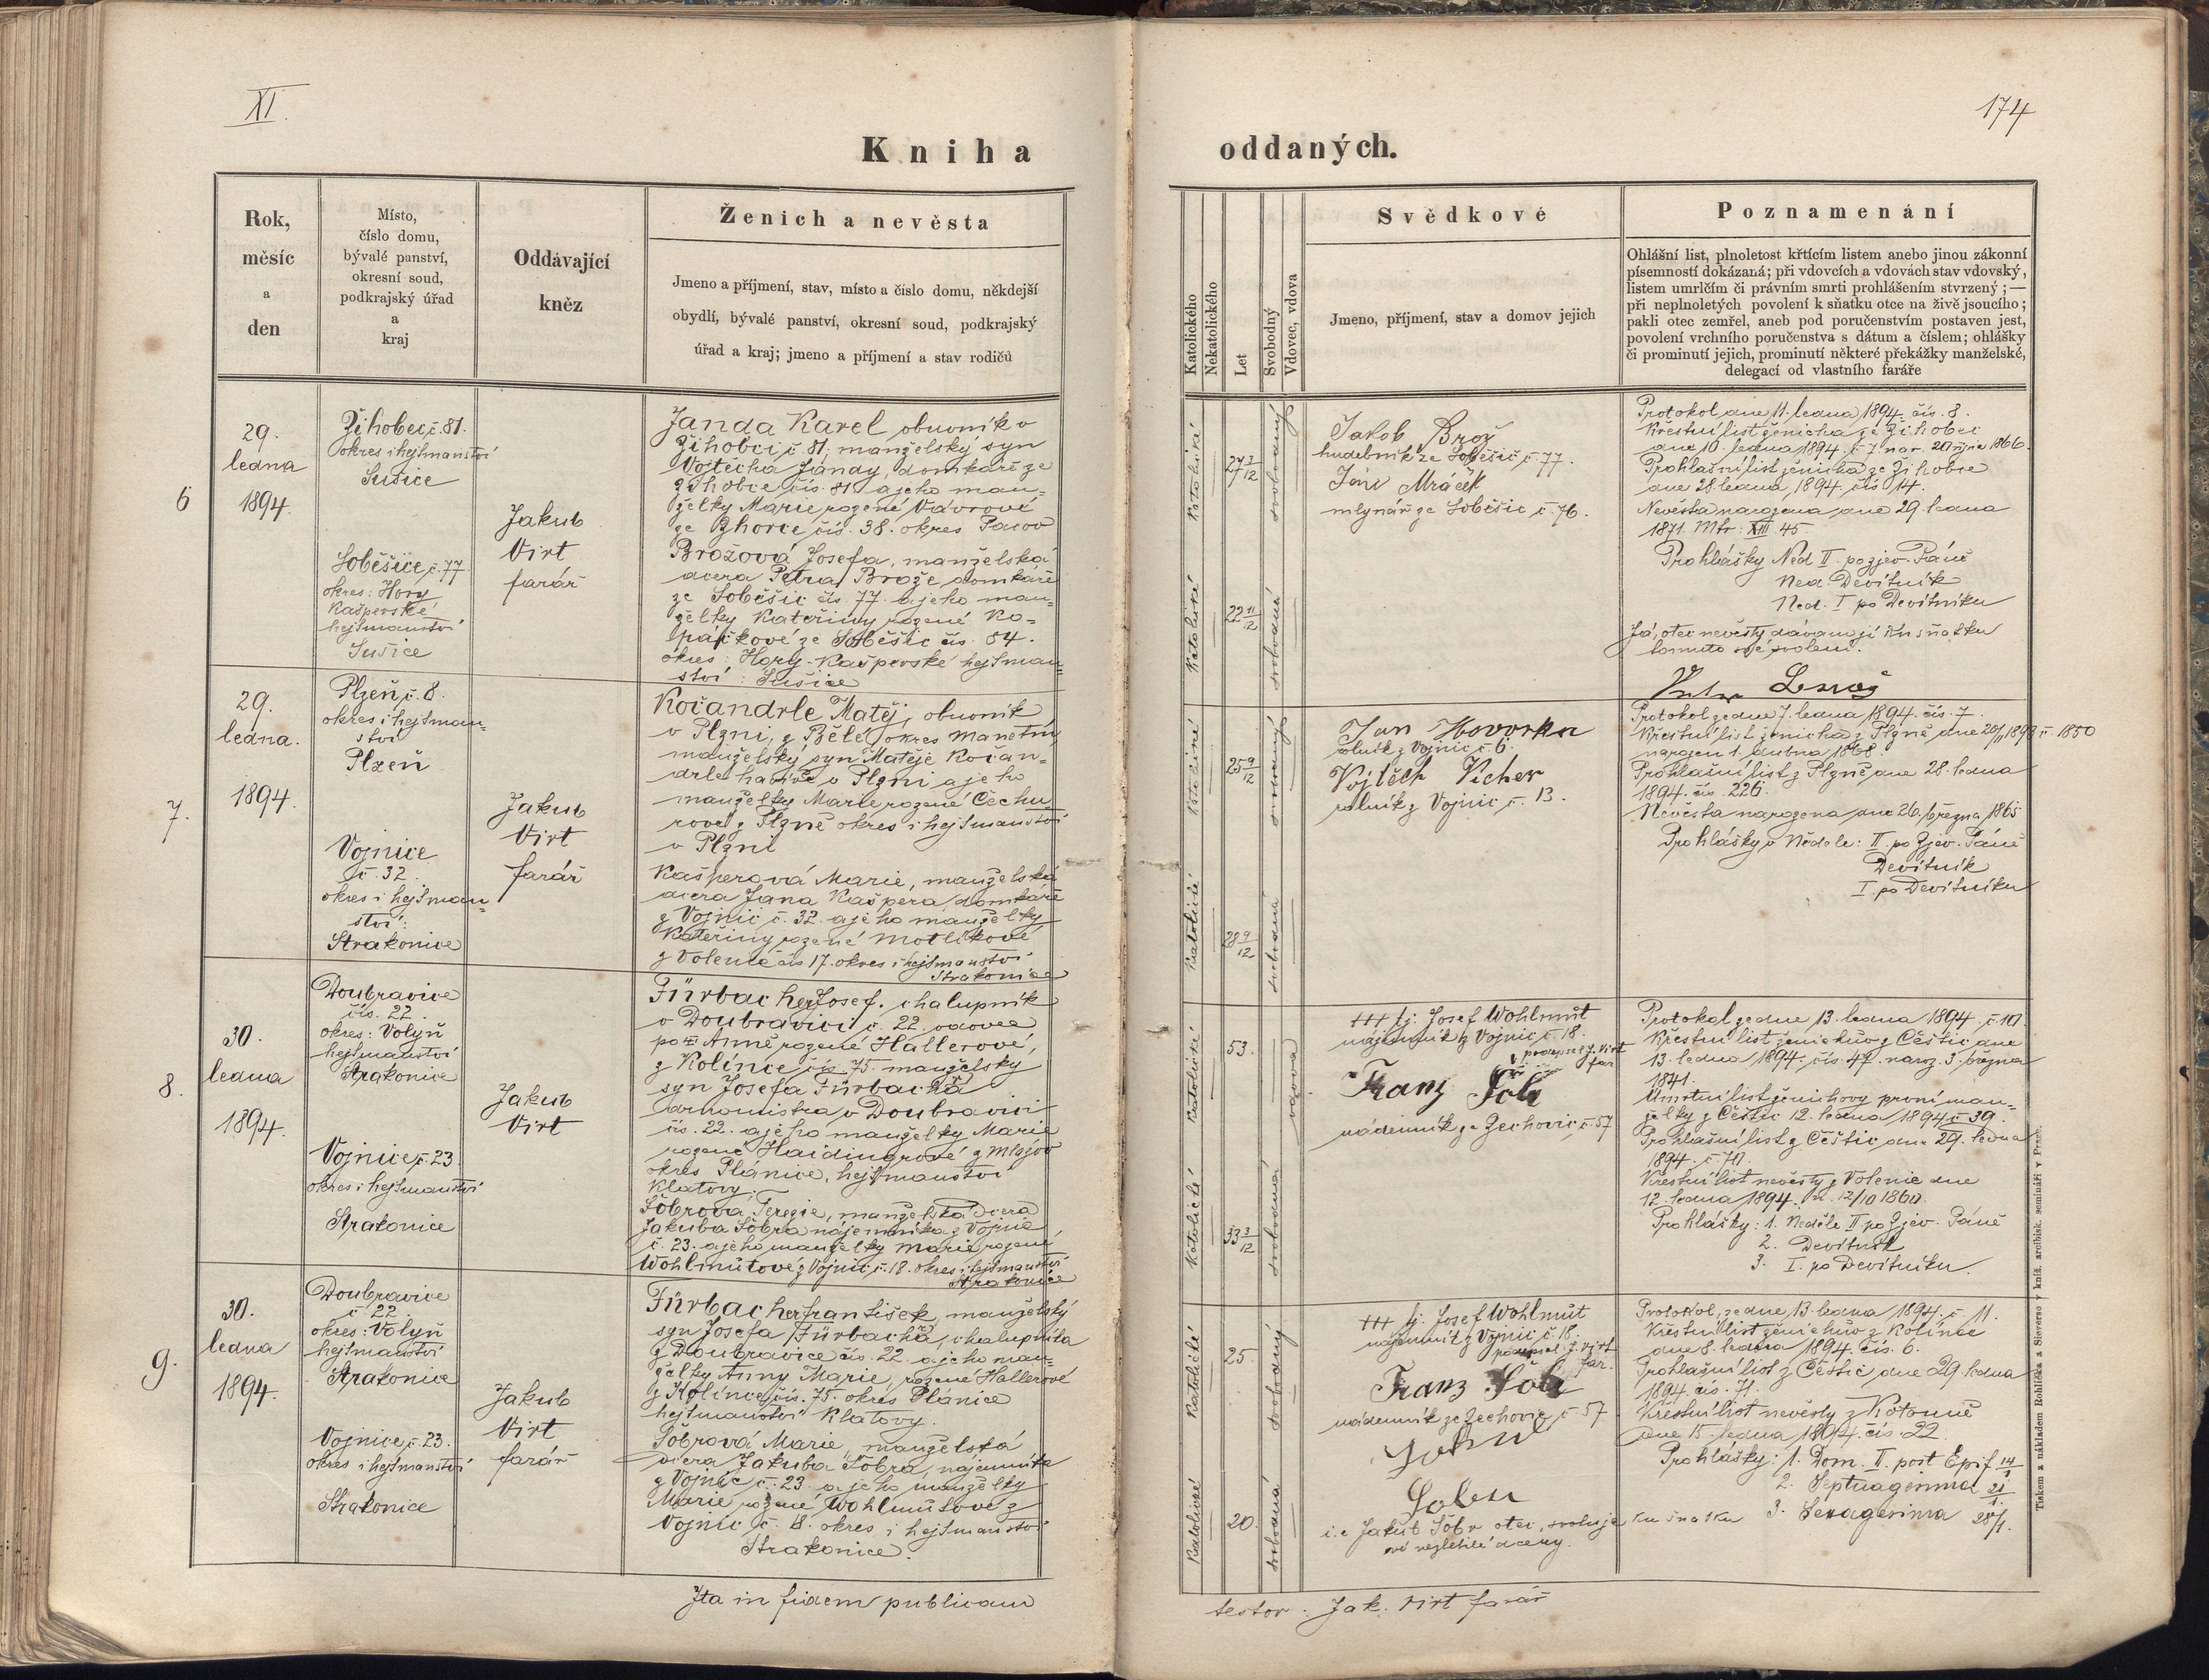 XI.
174
Kniha
oddaných.
Rok,
měsíc
a
den
Místo,
číslo domu,
bývalé panství,
okresní soud,
podkrajský úřad
a
kraj
Oddávající
kněz
Ženich a nevěsta
Jmeno a příjmení, stav, místo a číslo domu, někdejší
obydlí, bývalé panství, okresní soud, podkrajský
úřad a kraj; jmeno a příjmení a stav rodičů
Katolického
Nekatolického
Let
Svobodný
Vdovec, vdova
Svědkové
Jmeno, příjmení, stav a domov jejich
Poznamenání
Ohlášní list, plnoletost křtícím listem anebo jinou zákonní
písemností dokázaná; při vdovcích a vdovách stav vdovský,
listem umrlčím či právním smrti prohlášením stvrzený; —
při neplnoletých povolení k sňatku otce na živě jsoucího;
pakli otec zemřel, aneb pod poručenstvím postaven jest,
povolení vrchního poručenstva s dátum a číslem; ohlášky
či prominutí jejich, prominutí některé překážky manželské,
delegací od vlastního faráře
6
29.
ledna
1894.
Žihobec, č. 81.
okres i hejtmanství
Sušice
Soběšice, č. 77
okres: Hory
Kašperské
hejtmanství
Sušice
Jakub
Virt
farář
Janda Karel obuvník v
Žihobci č. 81, manželský syn
Vojtěcha Jandy, domkáře ze
Žihobce čís. 81. a jeho man=
želky Marie rozené Vávrové
ze Zhorce, čís. 38. okres Pacov
Brožová Josefa, manželská
dcera Petra Brože, domkáře
ze Soběšic čís. 77. a jeho man=
želky Kateřiny rozené Ko=
lpáčkové ze Soběšic čís. 84.
okres: Hory-Kašperské hejtman=
ství: Sušice
Katolické
27 3/12
svobodný
Katolické
22 11/12
svobodná
Jakob Brož
hudebník ze Soběšic č. 77.
Jan Mráček
mlynář ze Soběšic č. 76.
Protokol dne 11. ledna 1894. čís. 8.
Křestní list ženicha ze Žihobce
dne 10. ledna 1894. č. 7. nar. 20 října 1866.
Prohlašní list ženicha ze Žihobce
dne 28. ledna 1894. čís 14.
Nevěsta narozena dne 29. ledna
1871. Mtr: XIII 45
Prohlášky Ned II. po zjev. Páně
Ned. Devítník
Ned. I po Devítníku
Já, otec nevěsty dávam jí ku sňatku
tomuto své svolení.
7.
29.
ledna.
1894.
Plzeň, č. 8.
okres i hejtman=
ství
Plzeň
Vojnice
č. 32.
okres i hejtman=
ství:
Strakonice
Jakub
Virt
farář
Kočandrle Matěj, obuvník
v Plzni, z Bělé, okres Manetín,
manželský syn Matěje Kočan=
drle havíře v Plzni a jeho
manželky Marie rozené Čechu
rové z Plzně okres i hejtmanství
v Plzni
Kašperová Marie, manželská
dcera Jana Kašpera, domkáře
z Vojnic č. 32. a jeho manželky
Kateřiny rozené Motlíkové
z Volenic čís 17. okres i hejtmanství
Strakonice
25 9/12
Katolické
28 9/12
svobodná
Jan Hovorka
rolník z Vojnic č. 6.
Vojtěch Vicher
rolník z Vojnic č. 13.
Protokol ze dne 7. ledna 1894. čís. 7.
Křestní list ženicha z Plzně dne 20/11 1893 č. 1850
narozen 1. dubna 1868
Prohlašní list z Plzně dne 28. ledna
1894. čís. 226.
Nevěsta narozena dne 26. března 1865
Prohlášky v Neděle: II. po Zjev. Páně
Devítník
I. po Devítníku
8.
30.
ledna
1894.
Doubravice
čís. 22.
okres: Volyň
hejtmanství
Strakonice
Vojnice č. 23
okres i hejtmanství
Strakonice
Jakub
Virt
Fürbacher Josef. chalupník
v Doubravici č. 22. vdovec
po Anně rozené Hallerové,
z Kolince čís. 75. manželský
syn Josefa Fürbacha
v Doubravici
čís. 22. a jeho manželky Marie
rozené Haidingrové z
okres Plánice, hejtmanství
Klatovy.
Šobrová Terezie, manželská dcera
Jakuba Šobra nájemníka z Vojnic
č. 23. a jeho manželky Marie rozené
Wohlmutové z Vojnic č. 18. okres i hejtmanství
Strakonice
Katolické
53.
vdovec
Katolické
33 3/12
svobodná
+++ tj. Josef Wohlmut
nájemník z Vojnic č. 18.
podepsal J. Virt
far
Franz Šobr
nádenník ze Zechovic, č. 57
Protokol ze dne 13. ledna 1894. č. 10.
Křestní list ženichův z Čestic dne
13. ledna 1894. čís. 47. naroz. 3. března
1841.
Úmrtní list ženichovy první man=
želky z Čestic 12. ledna 1894 č. 39.
Prohlašní list z Čestic dne 29. ledna
1894. č. 70.
Křestní list nevěsty z Volenic dne
12. ledna 1894. n. 12/10 1860.
Prohlášky: 1. Neděle II po Zjev. Páně
2. Devítník
3. I. po Devítníku.
9.
30.
ledna
1894.
Doubravice
č. 22.
okres: Volyň
hejtmanství
Strakonice
Vojnice, č. 23.
okres i hejtmanství
Strakonice
Jakub
Virt
farář
Fürbacher František, manželský
syn Josefa Fürbachra, chalupníka
z Doubravice čís. 22. a jeho man=
želky Anny Marie, rozené Hallerové
z Kolince, čís. 75. okres Plánice
hejtmanství Klatovy.
Šobrová Marie, manželská
dcera Jakuba Šobra, nájemníka
z Vojnic č. 23. a jeho manželky
Marie rozené Wohlmutové z
Vojnic č. 18. okres i hejtmanství
Strakonice.
Katolické
25.
svobodný
Katolické
20.
svobodná
+++ tj. Josef Wohlmut
nájemník z Vojnic č. 18.
podepsal J. Virt
far.
Franz Šobr
nádenník ze Zechovic, č. 57
i.e Jakub Šobr otec, svoluje ku sňatku
své nezletilé dcery.
Protokol, ze dne 13. ledna 1894. č. 11.
Křestní list ženichův z Kolince
dne 8. ledna 1894. čís. 6.
Prohlašní list z Čestic dne 29. ledna
1894. čís. 71.
Křestní list nevěsty z Kotouně
dne 15. ledna 1894. čís. 22.
Prohlášky: 1. Dom. II. post Epif 14/1
2. Septuagesima 21/1.
3. Sexagesima 28/1.
Tiskem a nákladem Rohlíčka a Sieversa v kníž. arcibisk. semináři v Praze.
Ita in fidem publicam
testor: Jak. Virt farář